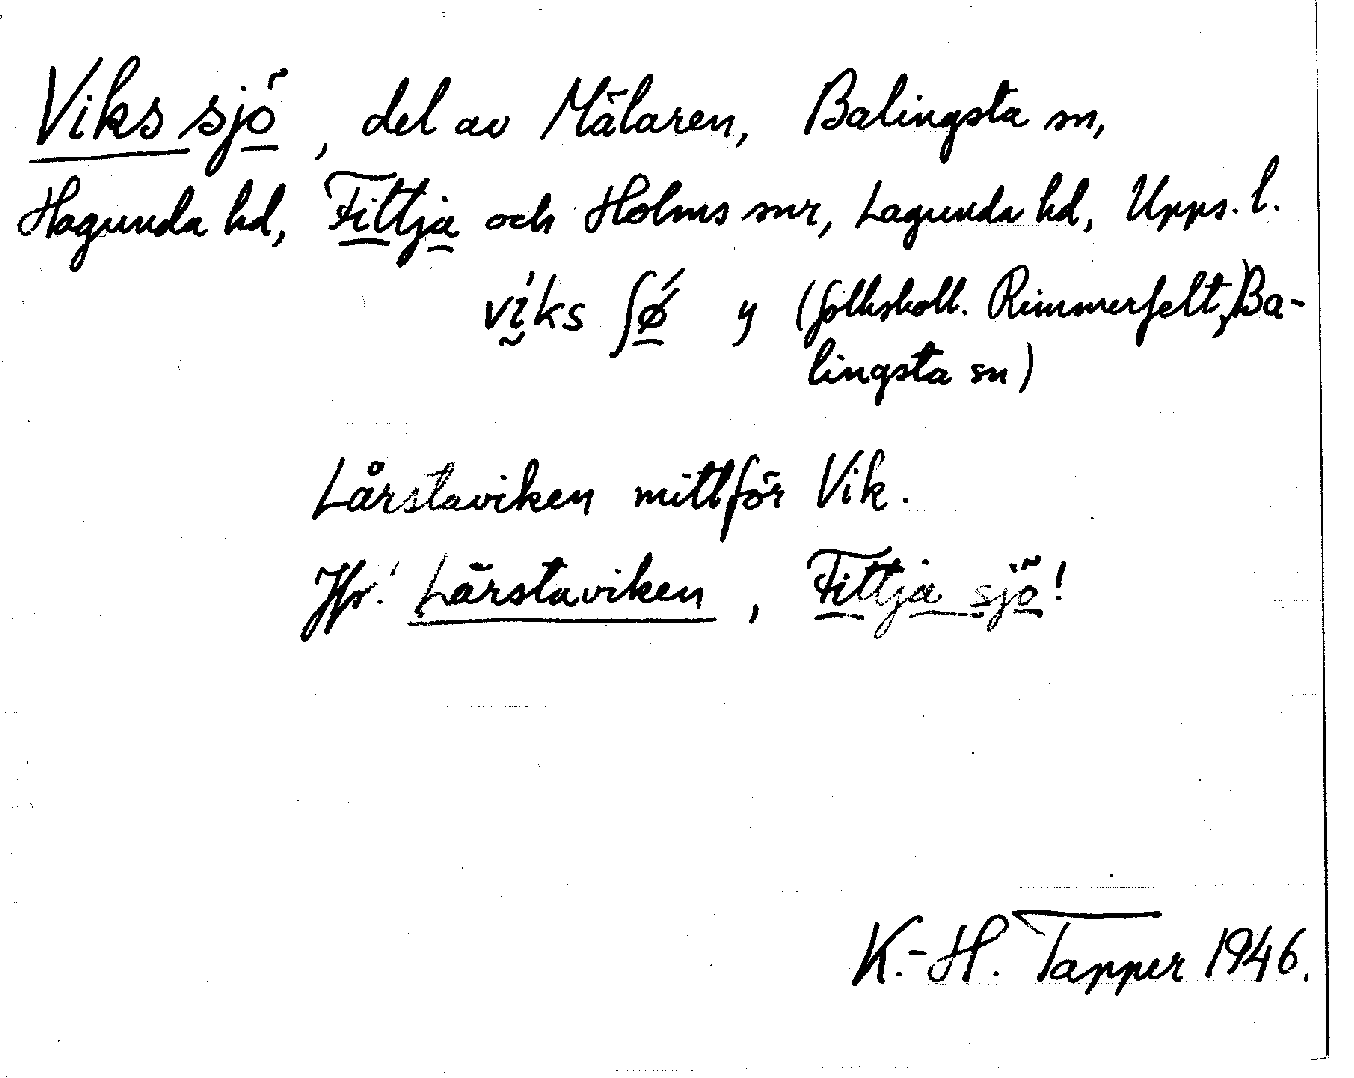 Viks sjö, del av Mälaren, Balingsta sn,
Hagunda hd, Fittja och Holms snr, Lagunda hd, Upps. l.
víks ʃǿ y (folkskoll. Rimmerfelt, Ba-
lingsta sn)
Lårstaviken mittför Vik.
Jfr! Lårstaviken, Fittja sjö!
K.-H. Tapper 1946.